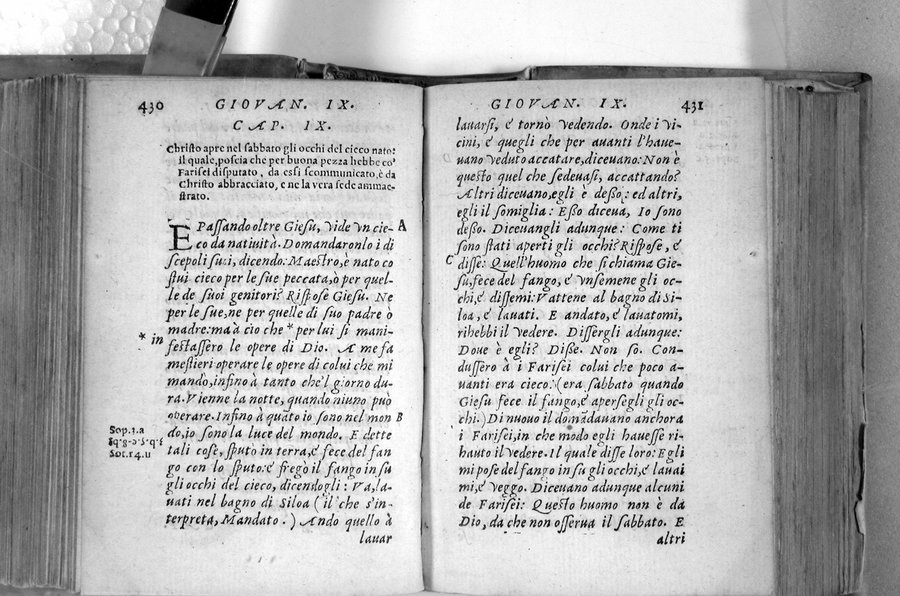 430 GIOVAN. IX.
CAP. IX.
Christo apre nel sabbato gli occhi del cieco nato:
il quale, poscia che per buona pezza hebbe co'
Farisei disputato, da essi scommunicato, è da
Christo abbracciato, e ne la vera fede ammae-
strato.
E Passando oltre Giesu, vide vn cie- A
co da natiuità. Domandaronlo i di
scepoli suoi, dicendo: Maestro, è nato co
stui cieco per le sue peccata, ò per quel-
le de suoi genitori? Rispose Giesu. Ne
per le sue, ne per quelle di suo padre ò
madre: ma à cio che * per lui si mani-
* in
festassero le opere di Dio. A me fa
mestieri operare le opere di colui che mi
mando, infino à tanto che'l giorno du-
ra. Vienne la notte, quando niuno può
operare. Infino à quāto io sono nel mon B
do, io sono la luce del mondo. E dette
Sop. 1.a
8.12
Sot. 14.11
tali cose, sputò in terra, e fece del fan
go con lo sputo: é fregò il fango in su
gli occhi del cieco, dicendogli: Va, la-
uati nel bagno di Siloa (il che s'in-
terpreta, Mandato.) Ando quello à
lauar
GIOVAN. IX. 431
lauarsi, é tornò vedendo. Onde i vi-
cini, é quegli che per auanti l'haue-
uano veduto accatare, diceuano: Non è
questo quel che sedeuasi, accattando?
Altri diceuano, egli è desso: ed altri,
egli il somiglia: Esso diceua, Io sono
desso. Diceuangli adunque: Come ti
sono stati aperti gli occhi? Rispose, é
C disse: Quell'huomo che si chiama Gie-
su, fece del fango, é vnsemene gli oc-
chi, é dissemi: Vattene al bagno di Si-
loa, é lauati. E andato, é lauatomi,
rihebbi il vedere. Dissergli adunque:
Doue è egli? Disse. Non so. Con-
dussero à i Farisei colui che poco a-
uanti era cieco: (era sabbato quando
Giesu fece il fango, é apersegli gli oc-
chi.) Di nuouo il domādauano anchora
i Farisei, in che modo egli hauesse ri-
hauto il vedere. Il quale disse loro: Egli
mi pose del fango in su gli occhi, é lauai
mi, é veggo. Diceuano adunque alcuni
de Farisei: Questo huomo non è da
Dio, da che non osserua il sabbato. E
altri